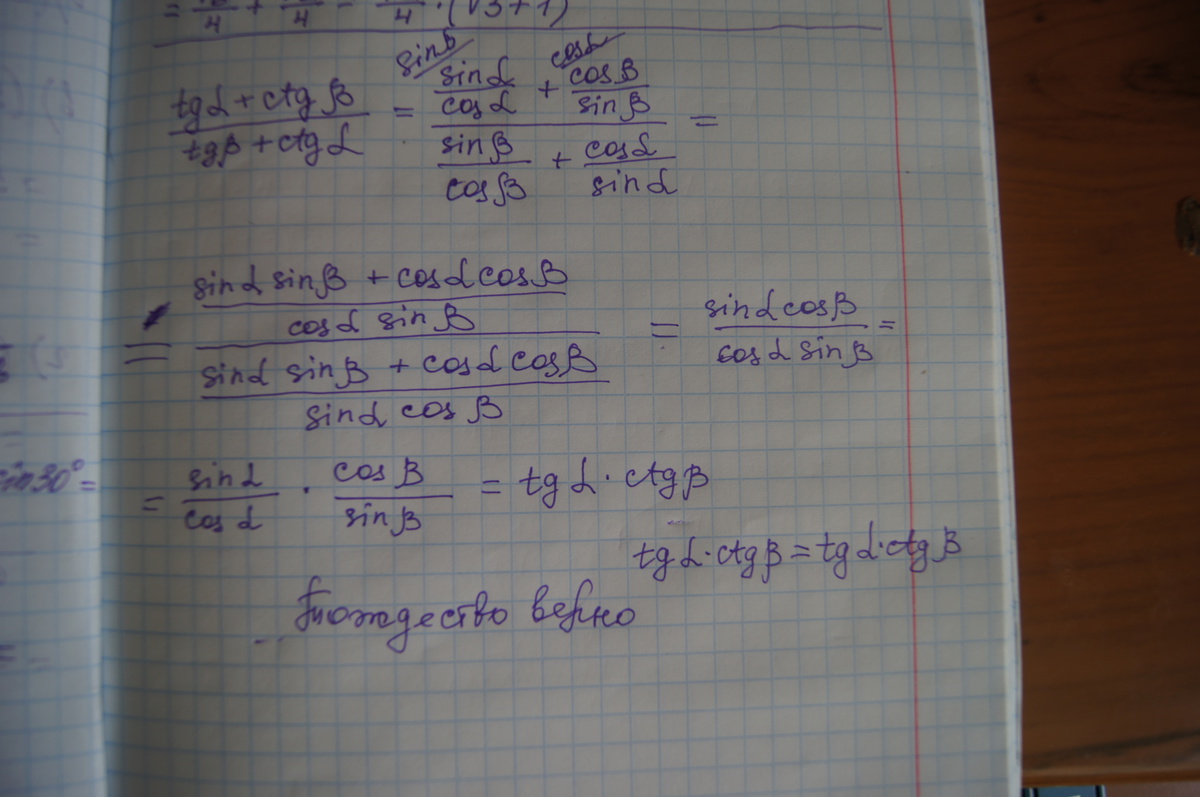 4 + 4 = 4 · (√3 + 1)
sinβ cosα
(tgα + ctgβ)/(tgβ + ctgα) = (sinα/cosα + cosβ/sinβ)/(sinβ/cosβ + cosα/sinα) =
= ((sinα sinβ + cosα cosβ)/(cosα sinβ))/((sinα sinβ + cosα cosβ)/(sinα cosβ)) = (sinα cosβ)/(cosα sinβ) =
sin30° =
= sinα/cosα · cosβ/sinβ = tgα · ctgβ
tgα · ctgβ = tgα · ctgβ
Тождество верно